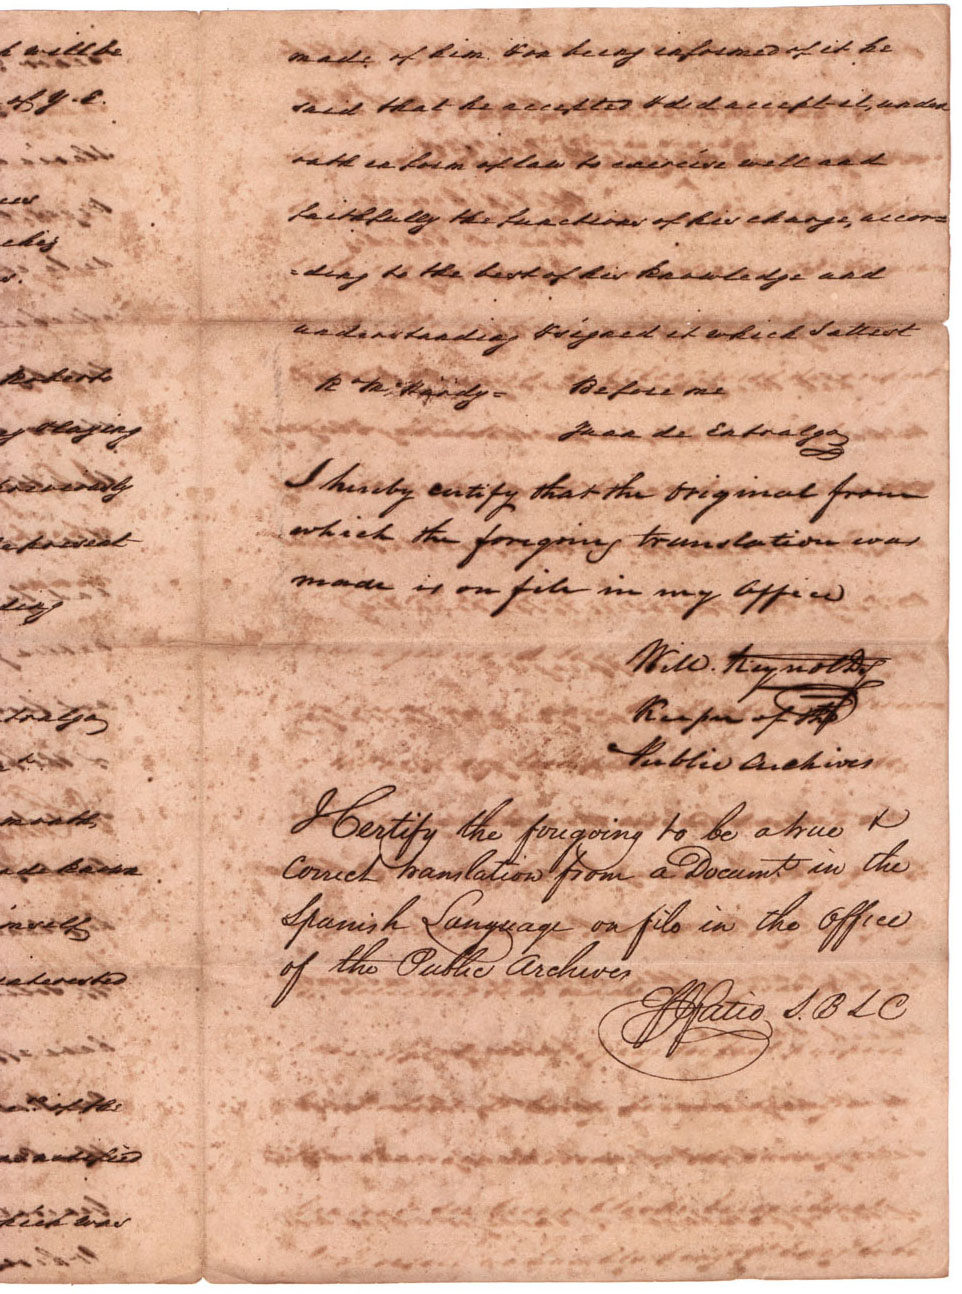 will be
of Y. E.
Roberto
previously
represent
ding
tralgo
month,
himself
interested
of the
notified
which was
made of him & on being informed of it he
said that he accepted & did accept it, under
oath in form of law to exercise well and
faithfully the functions of his charge, accor=
=ding to the best of his knowledge and
understanding & signed it which I attest
R McHardy= Before me
Juan de Entralgo
I hereby certify that the original from
which the foregoing translation was
made is on file in my Office
Will. Reynolds
Keeper of the
Public Archives
I Certify the foregoing to be a true &
Correct translation from a Documt. in the
Spanish Language on file in the Office
of the Public Archives
Fatio S. B L C